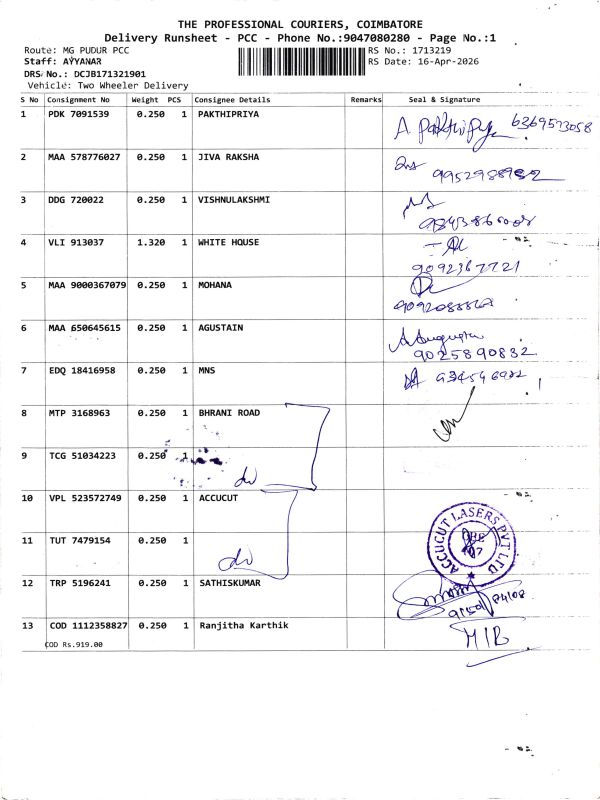 THE PROFESSIONAL COURIERS, COIMBATORE
Delivery Runsheet - PCC - Phone No.:9047080280 - Page No.:1
Route: MG PUDUR PCC
Staff: AYYANAR
DRS No.: DCJB171321901
Vehicle: Two Wheeler Delivery
RS No.: 1713219
RS Date: 16-Apr-2026
S No Consignment No Weight PCS Consignee Details Remarks Seal & Signature
1 PDK 7091539 0.250 1 PAKTHIPRIYA
6369573058
2 MAA 578776027 0.250 1 JIVA RAKSHA
3 DDG 720022 0.250 1 VISHNULAKSHMI
4 VLI 913037 1.320 1 WHITE HOUSE
9092367721
5 MAA 9000367079 0.250 1 MOHANA
6 MAA 650645615 0.250 1 AGUSTAIN
9025890832
7 EDQ 18416958 0.250 1 MNS
8 MTP 3168963 0.250 1 BHRANI ROAD
9 TCG 51034223 0.250 1
10 VPL 523572749 0.250 1 ACCUCUT
ACCUCUT LASERS PVT LTD
11 TUT 7479154 0.250 1
12 TRP 5196241 0.250 1 SATHISKUMAR
13 COD 1112358827 0.250 1 Ranjitha Karthik
MIB
COD Rs.919.00